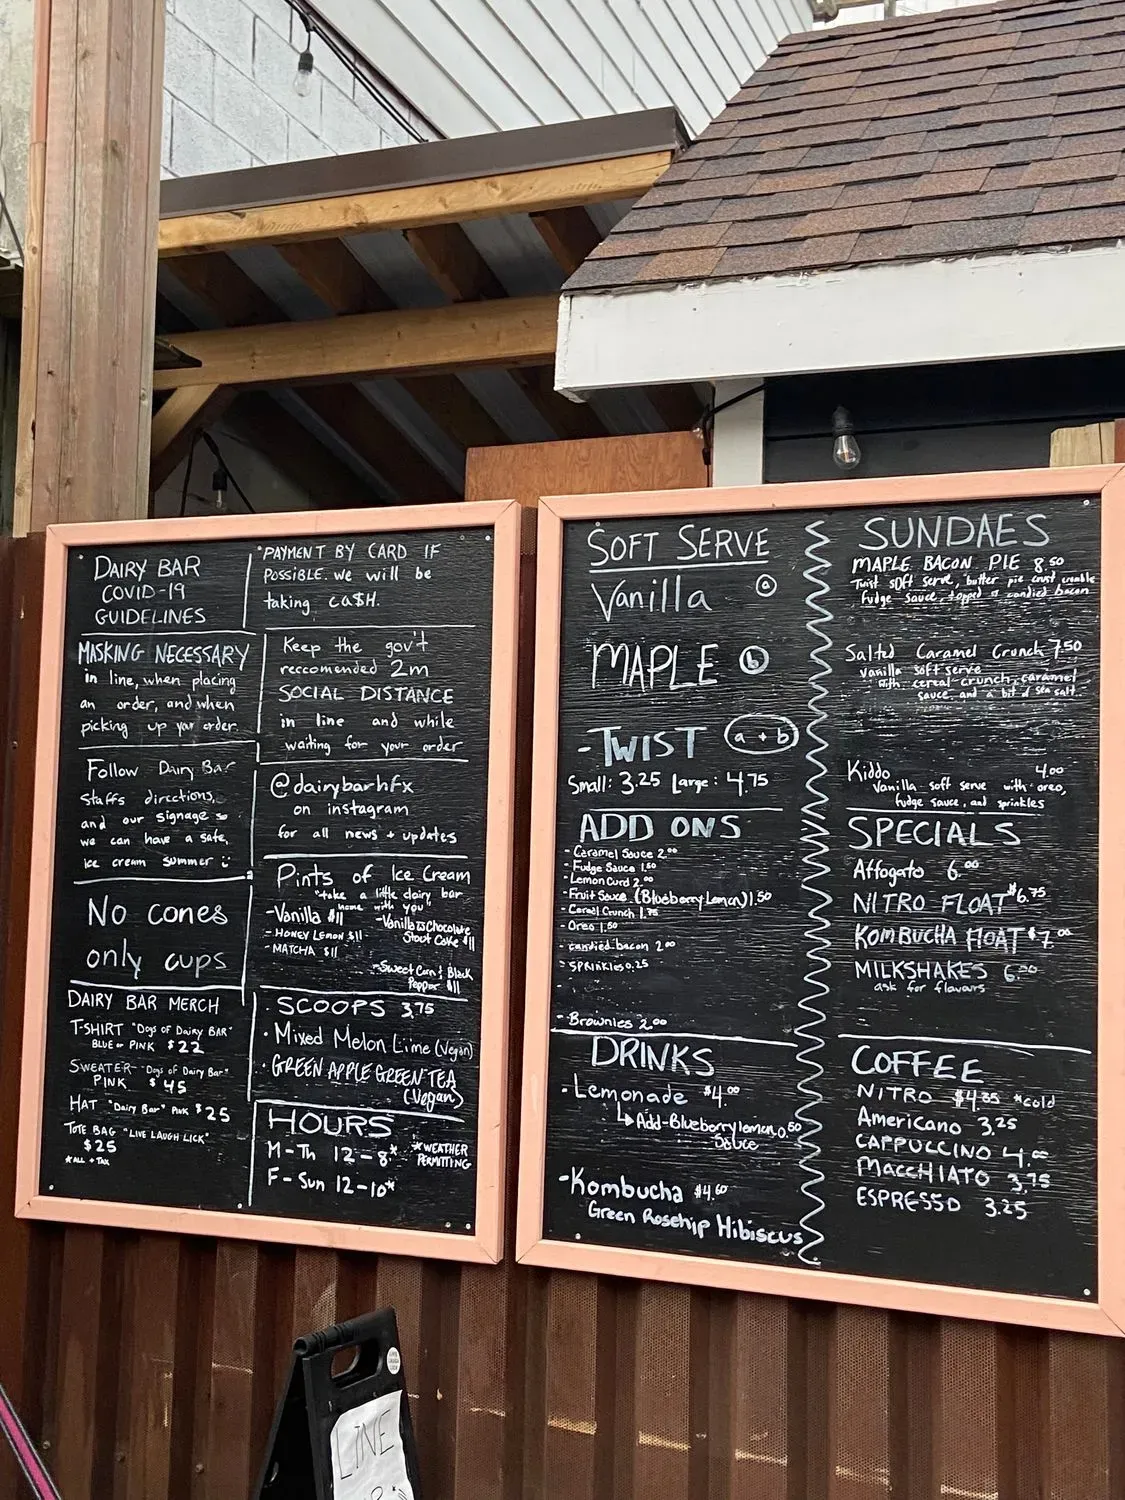 DAIRY BAR
COVID-19
GUIDELINES
MASKING NECESSARY
in line, when placing
an order, and when
picking up your order.
Follow Dairy Bar
staffs directions,
and our signage so
we can have a safe,
ice cream summer :)
No cones
only cups
DAIRY BAR MERCH
T-SHIRT "Dogs of DAIRY BAR"
BLUE or PINK $22
SWEATER "Dogs of Dairy Bar"
PINK $45
HAT "Dairy Bar" PINK $25
TOTE BAG "LIVE LAUGH LICK"
$25
*ALL + TAX
*PAYMENT BY CARD IF
POSSIBLE. we will be
taking ca$H.
Keep the gov't
reccomended 2m
SOCIAL DISTANCE
in line and while
waiting for your order
@dairybarhfx
on instagram
for all news + updates
Pints of Ice Cream
"take a little dairy bar
home with you"
-Vanilla $11
- HONEY LEMON $11
- MATCHA $11
-Vanilla & Chocolate
Stout Cake $11
-Sweet Corn & Black
Pepper $11
SCOOPS 3.75
· Mixed Melon Lime (Vegan)
· GREEN APPLE GREEN TEA
(Vegan)
HOURS
M-Th 12-8*
F-Sun 12-10*
*WEATHER
PERMITTING
SOFT SERVE
Vanilla a
MAPLE b
-TWIST a + b
Small: 3.25 Large: 4.75
ADD ONS
- Caramel Sauce 2.00
- Fudge Sauce 1.50
- Lemon Curd 2.00
- Fruit Sauce (Blueberry Lemon) 1.50
- Cereal Crunch 1.75
- Oreo 1.50
- candied bacon 2.00
- SPRINKLES 0.25
- Brownies 2.00
DRINKS
- Lemonade $4.00
↳ Add-Blueberry lemon 0.50
Sauce
-Kombucha $4.60
Green Rosehip Hibiscus
SUNDAES
MAPLE BACON PIE 8.50
Twist soft serve, butter pie crust crumble
fudge sauce, topped w candied bacon
Salted Caramel Crunch 7.50
vanilla soft serve
with cereal crunch, caramel
sauce, and a bit of sea salt
Kiddo 4.00
Vanilla soft serve with oreo,
fudge sauce, and sprinkles
SPECIALS
Affogato 6.00
NITRO FLOAT $6.75
KOMBUCHA FLOAT $7.00
MILKSHAKES 6.00
ask for flavours
COFFEE
NITRO *cold
Americano 3.25
CAPPUCCINO 4.00
MACCHIATO 3.75
ESPRESSO 3.25
LINE